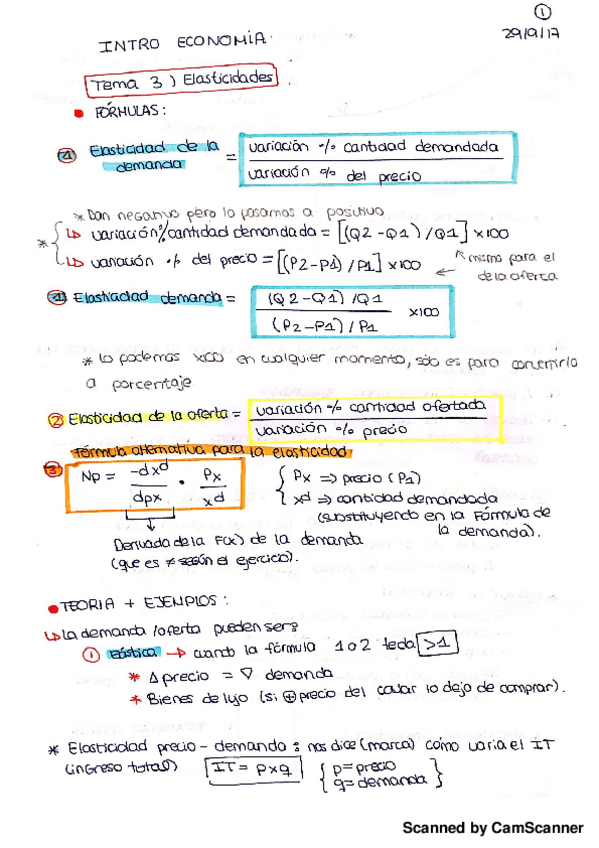 1
INTRO ECONOMIA. 29/9/17
Tema 3) Elasticidades
• FÓRMULAS:
1 Elasticidad de la demanda = variación % cantidad demandada / variación % del precio
* Dan negativo pero lo pasamos a positivo
* { ↳ variación % cantidad demandada = [(Q2-Q1)/Q1] x100
↳ variación % del precio = [(P2-P1)/P1] x100 ← mismo para el de la oferta
1 Elasticidad demanda = (Q2-Q1)/Q1 / (P2-P1)/P1 x100
* Lo podemos x100 en cualquier momento, sólo es para convertirlo
a porcentaje
2 Elasticidad de la oferta = variación % cantidad ofertada / variación % precio
Fórmula alternativa para la elasticidad
3 Np = -dxd / dpx · Px / xd { Px => precio (P1)
xd => cantidad demandada
(substituyendo en la Fórmula de
la demanda).
Derivada de la F(x) de la demanda
(que es ≠ según el ejercicio).
• TEORIA + EJEMPLOS:
↳ La demanda/oferta pueden ser:
1 Elástica → cuando la fórmula 1 o 2 te da >1
* Δ precio = ∇ demanda
* Bienes de lujo (si ⊕ precio del caviar lo dejo de comprar).
* Elasticidad precio-demanda: nos dice (marca) cómo varia el IT
(ingreso total) IT = p×q { p=precio
q=demanda }
Scanned by CamScanner